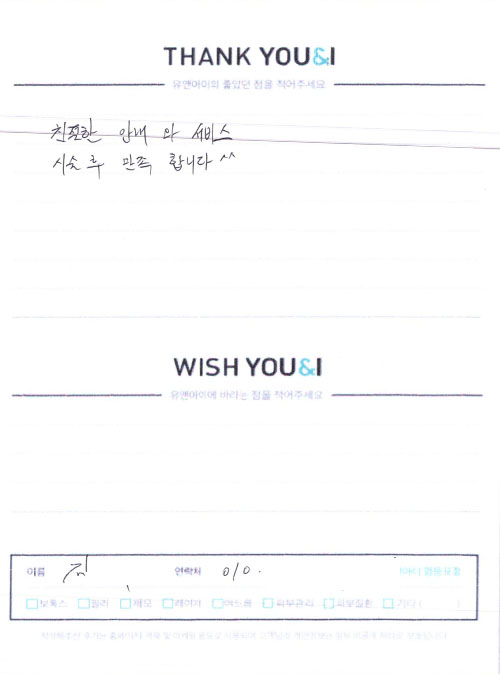 THANK YOU&I
유앤아이의 좋았던 점을 적어주세요
친절한 안내 와 서비스
시술 후 만족 합니다 ^^
WISH YOU&I
유앤아이에 바라는 점을 적어주세요
이름 김 연락처 010.
보톡스 필러 제모 레이저 여드름 피부관리 피부질환 기타 ( )